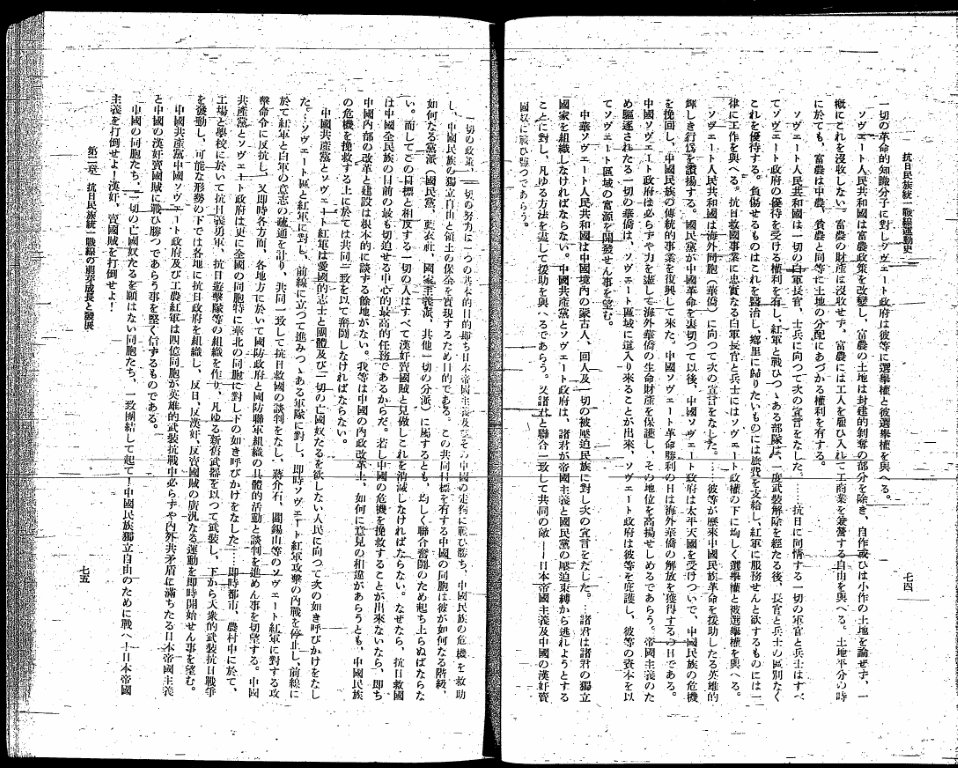 抗日民族統一戰線運動史
七四
一切の革命的知識分子に對しソヴェート政府は彼等に選擧權と被選擧權を與へる。
ソヴェート人民共和國は富農政策を改變し、富農の土地は封建的剝奪の部分を除き、自作或ひは小作の土地を論ぜず、一
槪にこれを沒收しない。富農の財產は沒收せず、富農には工人を雇ひ入れて工商業を兼營する自由を與へる。土地平分の時
に於ても、富農は中農、貧農と同等に土地の分配にあづかる權利を有する。
ソヴェート人民共和國は一切の白軍長官、士兵に向つて次の宣言をなした。……抗日に同情する一切の軍官と兵士はすべ
てソヴェート政府の優待を受ける權利を有し、紅軍と戰ひつゝある部隊は、一度武裝解除を經たる後、長官と兵士の區別なく
これを優待する。負傷せるものはこれを醫治し、鄕里に歸りたいものには旅費を支給し、紅軍に服務せんと欲するものには一
律に工作を與へる。抗日救國事業に忠實なる白軍長官と兵士にはソヴェート政權の下に均しく選擧權と被選擧權を與へる。
ソヴェート人民共和國は海外同胞(華僑)に向つて次の宣言をなした。……彼等が歷來中國民族革命を援助したる英雄的
輝しき行爲を讚揚する。國民黨が中國革命を裏切つて以後、中國ソヴェート政府は太平天國を受けついで、中國民族の危機
を挽回し、中國民族の傳統的事業を復興して來た。中國ソヴェート革命勝利の日は海外華僑の解放を獲得する今日である。
中國ソヴェート政府は必らずや力を盡して海外華僑の生命財產を保護し、その地位を高揚せしめるであらう。帝國主義のた
め驅逐されたる一切の華僑は、ソヴェート區域に這入り來ることが出來、ソヴェート政府は彼等を庇護し、彼等の資本を以
てソヴェート區域の富源を開發せん事を望む。
中華ソヴェート人民共和國は中國境內の蒙古人、回人及び一切の被壓迫民族に對し次の宣言をなした。……諸君は諸君の獨立
國家を組織しなければならない。中國共產黨とソヴェート政府は、諸君が帝國主義と國民黨の壓迫束縛から逃れようとする
ことに對し、凡ゆる方法を盡して援助を與へるであらう。又諸君と聯合一致して共同の敵――日本帝國主義及中國の漢奸賣
國奴に戰ひ勝つであらう。
一切の政策、一切の努力に一つの基本的目的卽ち日本帝國主義及びその中國の走狗に戰ひ勝ち、中國民族の危機を救助
し、中國民族の獨立自由と領土の保全を實現するため目的である。この共同目標を有する中國の同胞は彼が如何なる階級、
如何なる黨派(國民黨、藍衣社、國家主義派、其他一切の分派)に屬するとも、均しく聯合奮鬪のため起ち上らねばならな
い。而してこの目標と相反する一切の人はすべて漢奸賣國賊と見做しこれを消滅しなければならない。なぜなら、抗日救國
は中國全民族の目前の最も切迫せる中心的最高的任務であるからだ。若し中國の危機を挽救することが出來ないなら、卽ち
中國內部の改革と建設は根本的に談ずる餘地がない。我等は中國の內政改革上、如何に意見の相違があらうとも、中國民族
の危機を挽救する上に於ては共同一致を以て奮鬪しなければならない。
中國共產黨とソヴェート紅軍は愛國的志士と團體及び一切の亡國奴たるを欲しない人民に向つて次の如き呼びかけをなし
た。……ソヴェート區と紅軍に對し、前線に立つて進みつゝある軍隊に對し、卽時ソヴェート紅軍攻擊の內戰を停止し、前線に
於て紅軍と白軍の意志の疏通を計り、共同一致して抗日救國の談判をなし、蔣介石、閻錫山等のソヴェート紅軍に對する攻
擊命令に反抗し、又卽時各方面、各地方に於いて國防政府と國防聯軍組織の具體的活動と談判を進めん事を切望する。中國
共產黨とソヴェート政府は更に全國の同胞特に華北の同胞に對し下の如き呼びかけをなした……卽時都市、農村中に於て、
工場と學校に於いて抗日義勇軍、抗日遊擊隊等の組織を作り、凡ゆる新舊武器を以つて武裝し、下から大衆的武裝抗日戰爭
を發動し、可能な形勢の下では各地に抗日政府を組織し、反日、反漢奸、反賣國賊の廣汎なる運動を卽時開始せん事を望む。
中國共產黨中國ソヴェート政府及び工農紅軍は四億同胞が英雄的武裝抗戰中必らずや內外共矛盾に滿ちたる日本帝國主義
と中國の漢奸賣國賊に戰ひ勝つであらう事を堅く信ずるものである。
中國の同胞たち、一切の亡國奴たるを願はない同胞たち、一致團結して起て!中國民族獨立自由のために戰へ!日本帝國
主義を打倒せよ!漢奸、賣國賊を打倒せよ!
第二章 抗日民族統一戰線の萠芽成長と發展
七五